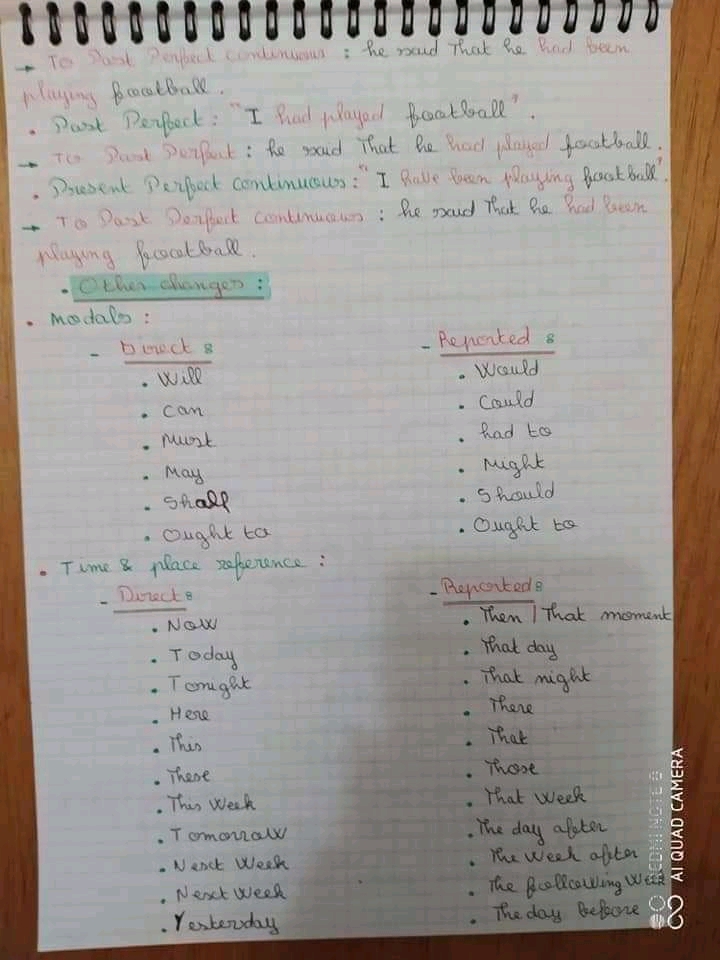 → To Past Perfect continuous : he said That he had been
playing football.
• Past Perfect : "I had played football".
→ To Past Perfect : he said That he had played football.
• Present Perfect continuous : "I have been playing football".
→ To Past Perfect continuous : he said That he had been
playing football.
• Other changes :
• Modals :
- Direct : - Reported :
• Will • Would
• Can • Could
• Must • had to
• May • Might
• Shall • Should
• Ought to • Ought to
• Time & place reference :
- Direct : - Reported :
• Now • Then / That moment
• Today • That day
• Tonight • That night
• Here • There
• This • That
• These • Those
• This Week • That Week
• Tomorrow • The day after
• Next Week • The Week after
• Next Week • The following Week
• Yesterday • The day before
REDMI NOTE 8
AI QUAD CAMERA